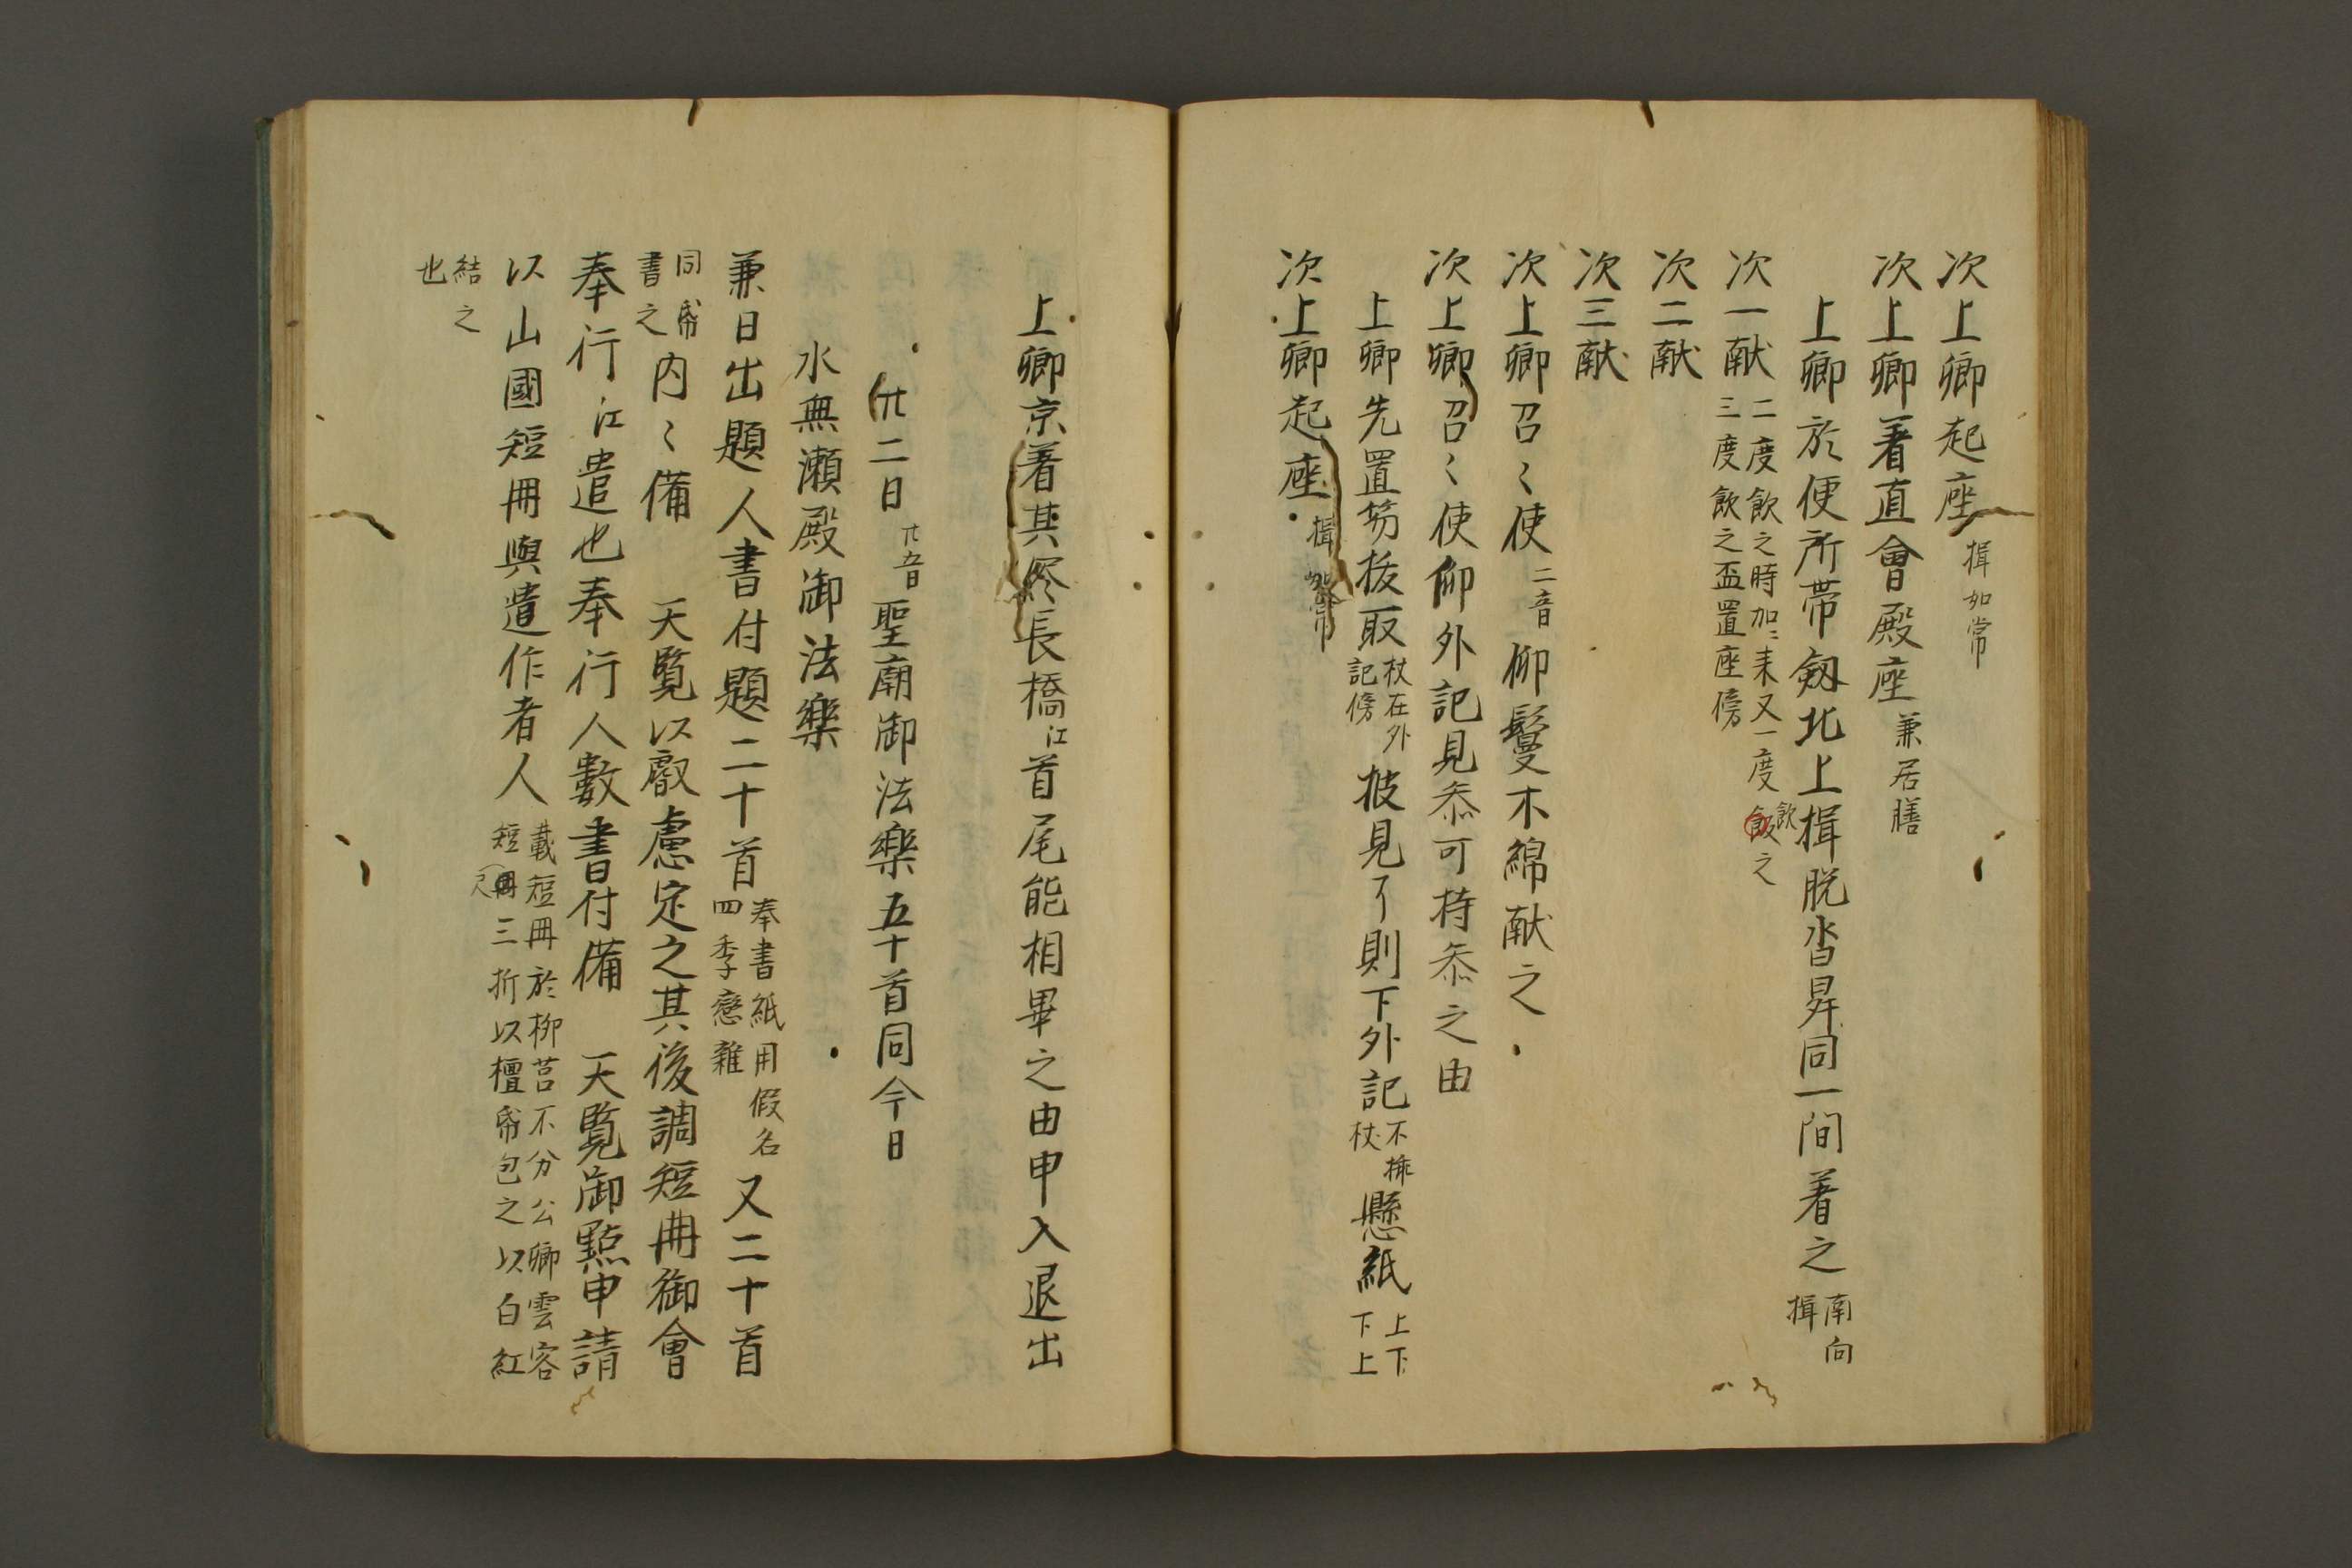 次上卿起座揖如常
次上卿着直會殿座兼居膳
上卿於便所帯劔北上揖脱沓昇同一間着之南向揖
次一献二度飲之時加〻来又一度飯飲之三度飲之盃置座傍
次二献
次三献
次上卿召〻使二音仰鬘木綿献之
次上卿召〻使仰外記見参可持参之由
上卿先置笏抜取杖在外記傍披見了則下外記不挿杖懸紙上下下上
次上卿起座揖如常
上卿京着其後長橋江首尾能相畢之由申入退出
廿二日廿五日聖廟御法樂五十首同今日
水無瀬殿御法樂
兼日出題人書付題二十首奉書紙用假名四季戀雜又二十首
同帋書之内〻備 天覧以叡慮定之其後調短冊御會
奉行江遣也奉行人數書付備 天覧御點申請
以山國短冊與遣作者人載短冊於柳筥不分公卿雲客短冊尺三折以檀帋包之以白紅
結之也